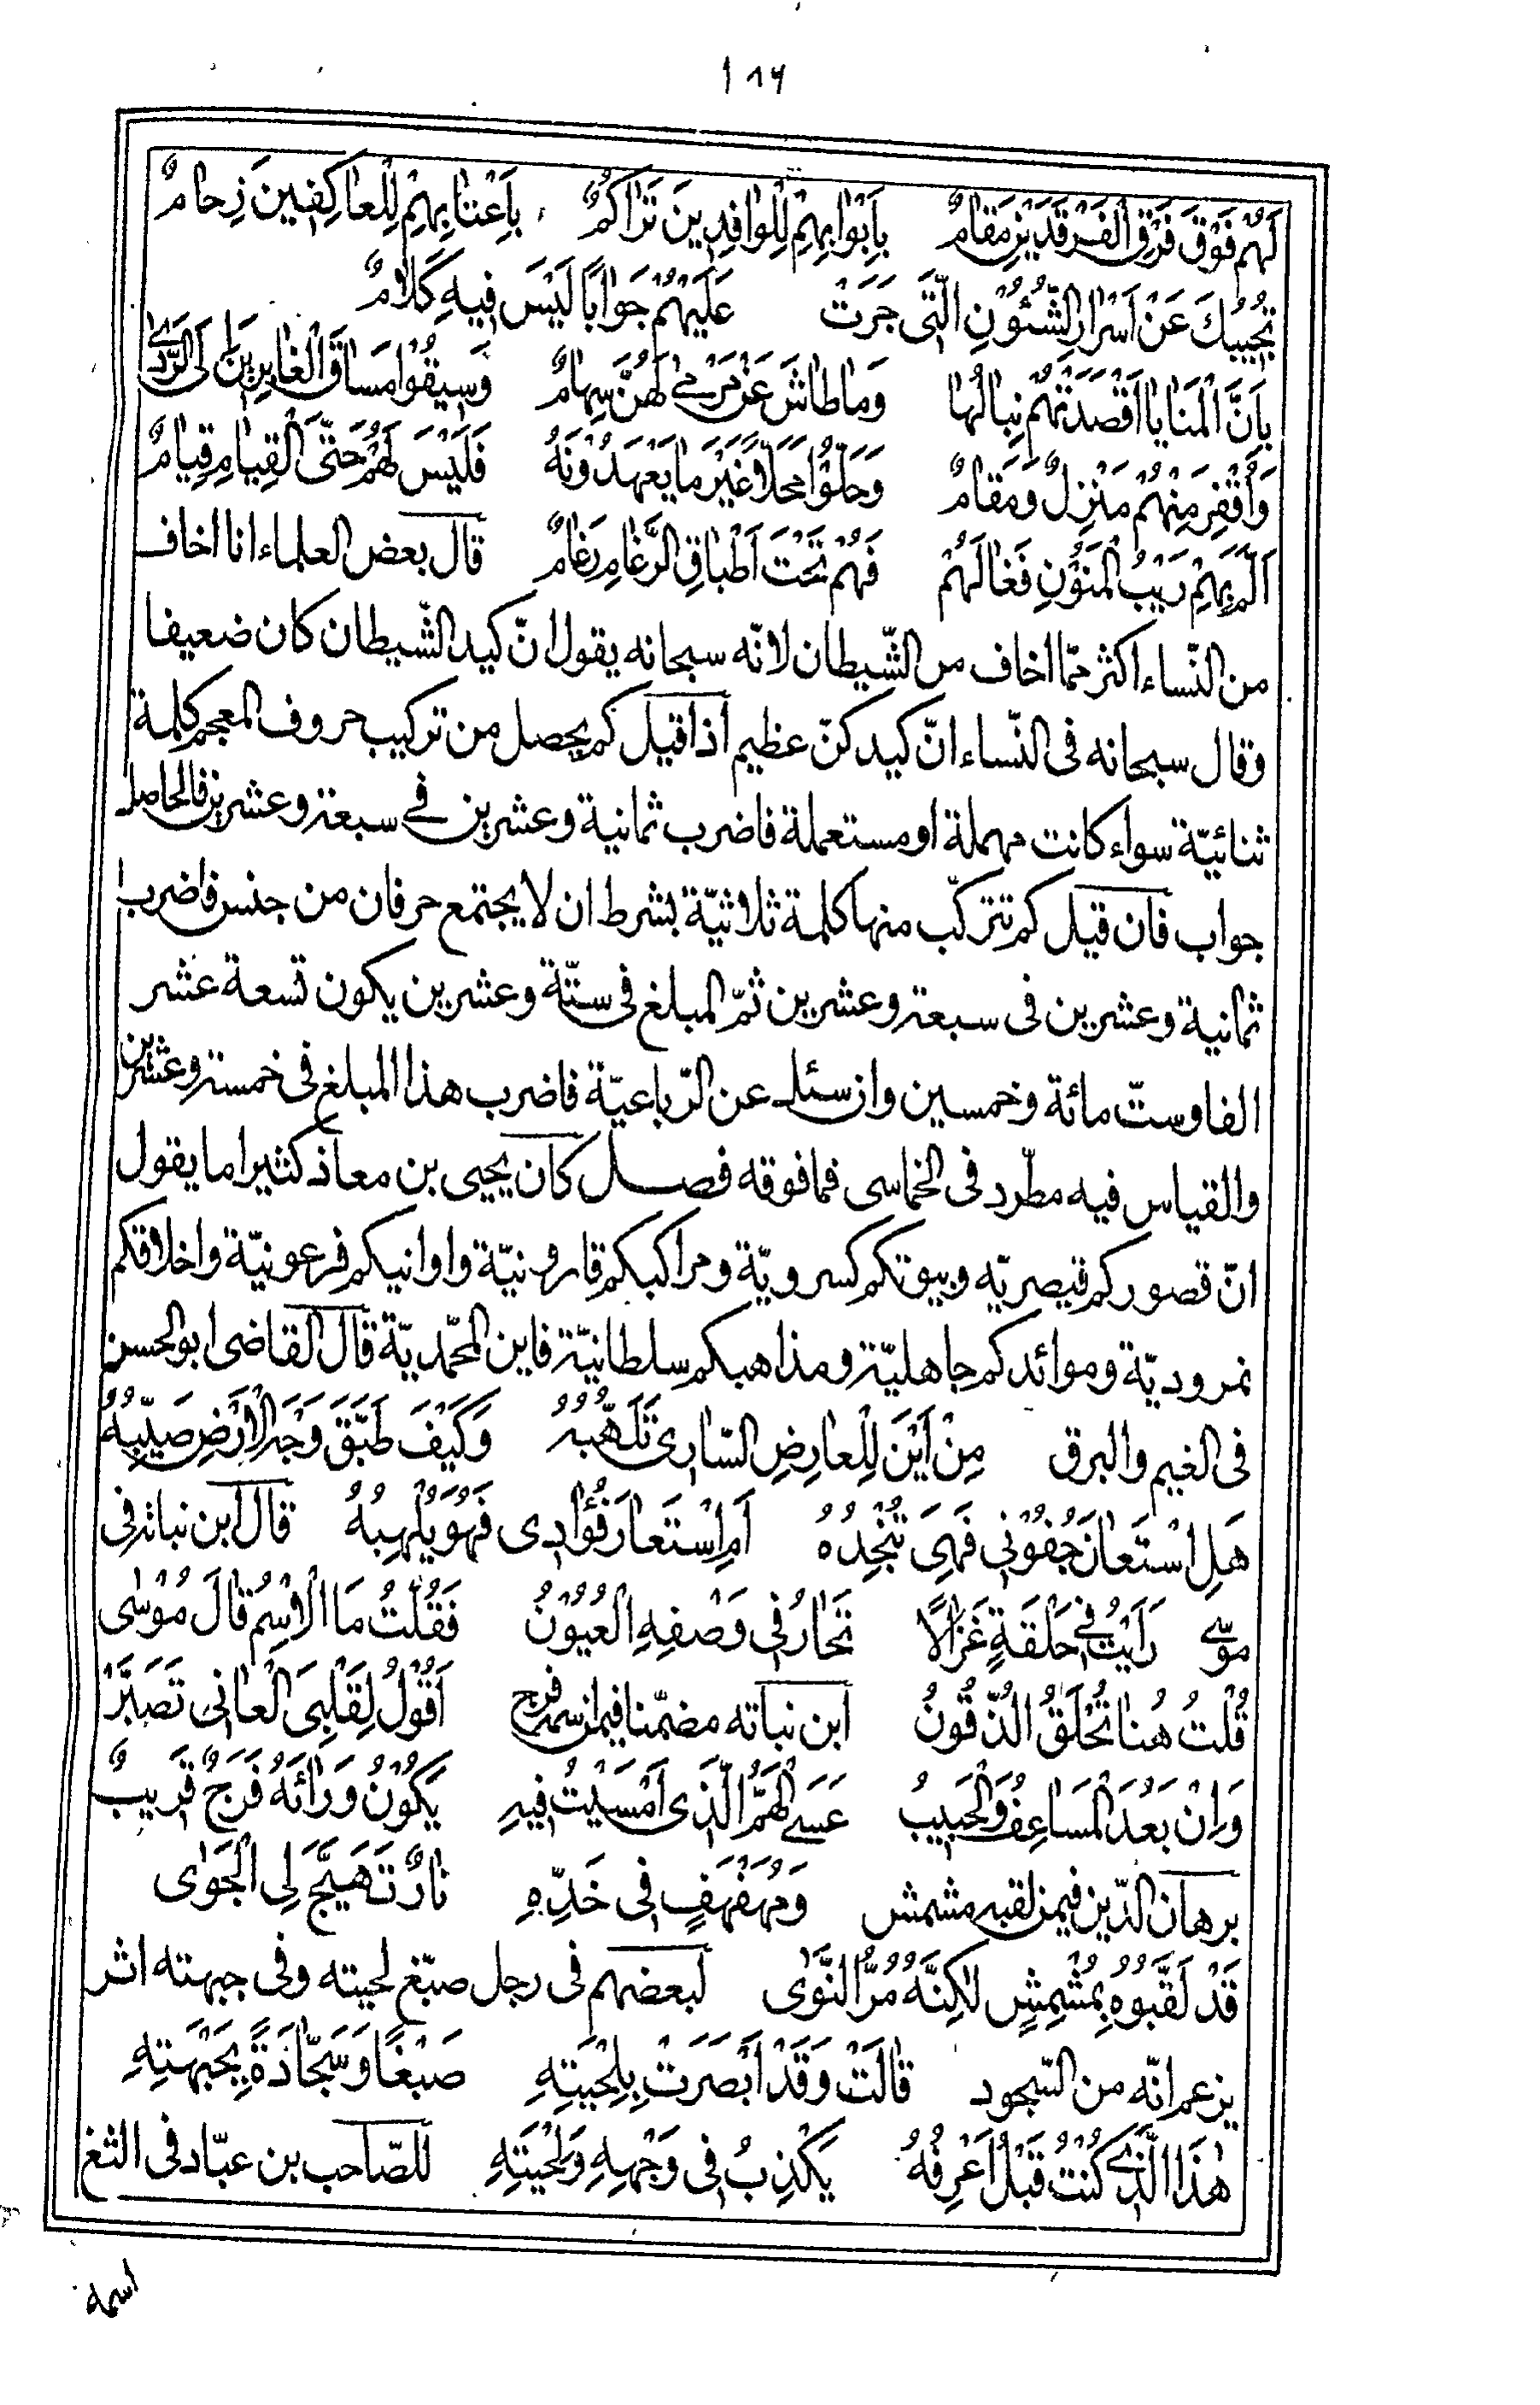 ۱۸۶
لَهُمْ فَوْقَ فَرْقِ الْفَرْقَدَيْنِ مَقامٌ بِاَبْوابِهِمْ لِلْوافِدِينَ تَراكُمٌ بِاَعْتابِهِمْ لِلْعاكِفِينَ زِحامٌ
تُجِيبُكَ عَنْ اَسْرارِ الشُّئُوْنِ الَّتَى جَرَتْ عَلَيْهُمْ جَوابًا لَيْسَ فِيهِ كَلامٌ
بِاَنَّ الْمَنايا اَقْصَدَتْهُمْ نِبالُها وَما طاشَ عَنْ مَرْمىً لَهُنَّ سِهامٌ وَسِيقُوا مَساقَ الْغابِرِينَ اِلَى الرَّدىٰ
وَاُقْفِرَ مِنْهُمْ مَنْزِلٌ وَمَقامٌ وَحَلُّوْا مَحَلًّا غَيْرَ ما يَعْهَدُوْنَهُ فَلَيْسَ لَهُمْ حَتَّى الْقِيامِ قِيامٌ
اَلَمَّ بِهِمْ رَيْبُ الْمَنُوْنِ فَغالَهُمْ فَهُمْ تَحْتَ اَطْباقِ الرَّغامِ رَغامٌ قال بعض العلماء انا اخاف
من النّساء اكثر ممّا اخاف من الشّيطان لانّه سبحانه يقول انّ كيد الشّيطان كان ضعيفا
وقال سبحانه فى النّساء انّ كيدكنّ عظيم اذا قيل كم يحصل من تركيب حروف المعجم كلمة
ثنائيّة سواء كانت مهملة او مستعملة فاضرب ثمانية وعشرين فى سبعة وعشرين فالحاصل
جواب فان قيل كم تتركّب منها كلمة ثلاثيّة بشرط ان لا يجتمع حرفان من جنس فاضرب
ثمانية وعشرين فى سبعة وعشرين ثمّ المبلغ فى ستّة وعشرين يكون تسعة عشر
الفا وستّ مائة وخمسين وان سئل عن الرّباعيّة فاضرب هذا المبلغ فى خمسة وعشرين
والقياس فيه مطّرد فى الخماسى فما فوقه فصل كان يحيى بن معاذ كثيرا ما يقول
انّ قصوركم قيصريّه وبيوتكم كسرويّة ومراكبكم قارونيّة واوانيكم فرعونيّة واخلاقكم
نمروديّة وموائدكم جاهليّة ومذاهبكم سلطانيّة فاين المحمّديّة قال القاضى ابو الحسن
فى الغيم والبرق مِنْ اَيْنَ لِلْعارِضِ السّارِى تَلَهُّبُهُ وَكَيْفَ طَبَّقَ وَجْهَ الْاَرْضِ صَيِّبُهُ
هَلِ اسْتَعانَ جُفُوْنِى فَهِىَ تُنْجِدُهُ اَمِ اسْتَعارَ فُؤادِى فَهُوَ يُلْهِبُهُ قال ابن نباته فى
موسى رَاَيْتُ فِى حَلْقَةٍ غَزالًا تَحارُ فِى وَصْفِهِ الْعُيُوْنُ فَقُلْتُ مَا الْاِسْمُ قالَ مُوْسٰى
قُلْتُ هُنا تُحْلَقُ الذُّقُونُ ابن نباته مضمّنا فيمن اسمه فرج اَقُوْلُ لِقَلْبِىَ الْعانِى تَصَبَّرْ
وَاِنْ بَعُدَ الْمُساعِفُ وَالْحَبِيبُ عَسَى الْهَمُّ الَّذِى اَمْسَيْتُ فِيهِ يَكُوْنُ وَرائَهُ فَرَجٌ قَرِيبٌ
برهان الدّين فيمن لقبه مشمش وَمُهَفْهَفٍ فِى خَدِّهِ نارٌ تَهَيَّجَ لِى الْجَوٰى
قَدْ لَقَّبُوْهُ بِمُشْمِشٍ لٰكِنَّهُ مُرُّ النَّوٰى لبعضهم فى رجل صبّغ لحيته وفى جبهته اثر
يزعم انّه من السّجود قالَتْ وَقَدْ اَبْصَرَتْ بِلِحْيَتِهِ صَبْغًا وَسَجّادَةً بِجَبْهَتِهِ
هٰذَا الَّذِى كُنْتُ قَبْلُ اَعْرِفُهُ يَكْذِبُ فِى وَجْهِهِ وَلِحْيَتِهِ للصّاحب بن عبّاد فى الثغ
اسمه